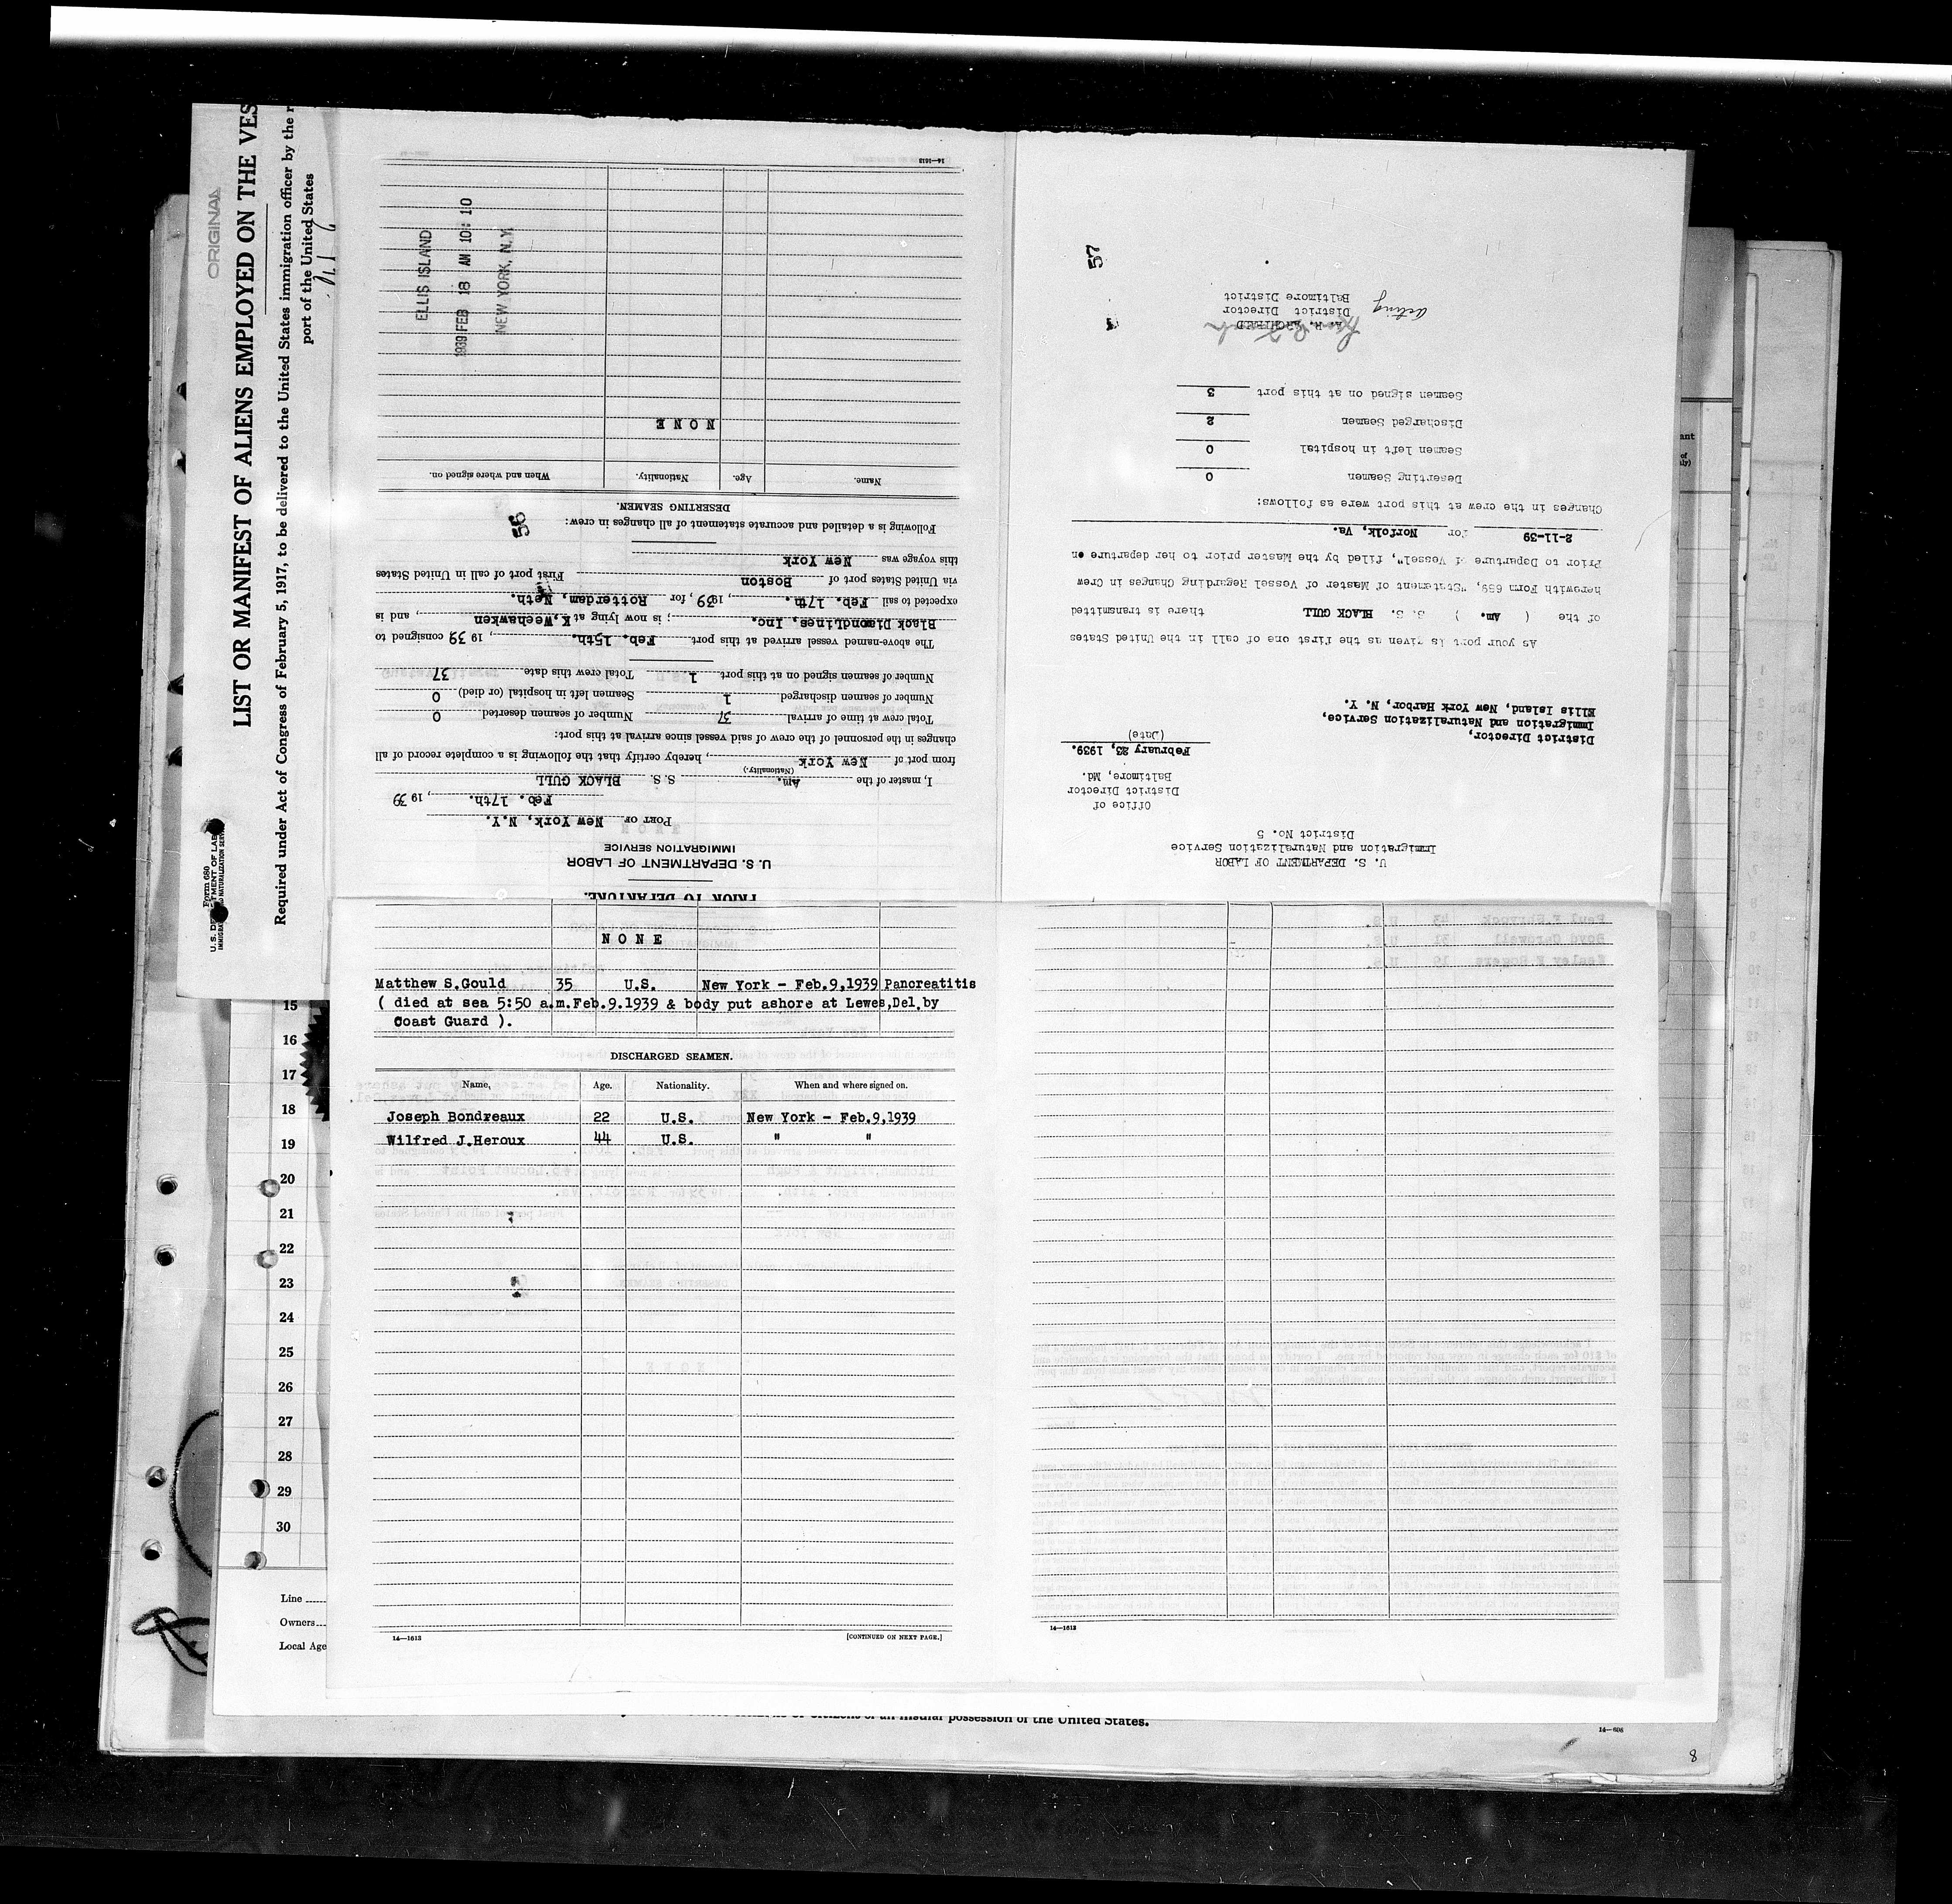 ORIGINAL
LIST OR MANIFEST OF ALIENS EMPLOYED ON THE VES
Required under Act of Congress of February 5, 1917, to be delivered to the United States immigration officer by the r
port of the United States
Form 680
U. S. DE TMENT OF LAB
IMMIGRA D NATURALIZATION SERV
PRIOR TO DEPARTURE.
U. S. DEPARTMENT OF LABOR
IMMIGRATION SERVICE
PORT OF New York, N.Y.
Feb. 17th., 1939
I, master of the Am. S. S. BLACK GULL
(Nationality.)
from port of New York, hereby certify that the following is a complete record of all
changes in the personnel of the crew of said vessel since arrival at this port:
Total crew at time of arrival 37 Number of seamen deserted 0
Number of seamen discharged 1 Seamen left in hospital (or died) 0
Number of seamen signed on at this port 1 Total crew this date 37
The above-named vessel arrived at this port Feb. 15th., 1939 consigned to
Black DiamondLines, Inc.; is now lying at K,Weehawken, and is
expected to sail Feb. 17th., 1939, for Rotterdam, Neth.
via United States port of Boston First port of call in United States
this voyage was New York
Following is a detailed and accurate statement of all changes in crew:
56
DESERTING SEAMEN.
Name. Age. Nationality. When and where signed on.
NONE
ELLIS ISLAND
1939 FEB 18 AM 10: 10
NEW YORK, N.Y.
14—1613
U. S. DEPARTMENT OF LABOR
Immigration and Naturalization Service
District No. 5
Office of
District Director
Baltimore, Md.
February 23, 1939.
(Date)
District Director,
Immigration and Naturalization Service,
Ellis Island, New York Harbor, N. Y.
As your port is given as the first one of call in the United States
of the ( Am. ) S. S. BLACK GULL there is transmitted
herewith Form 689, "Statement of Master of Vessel Regarding Changes in Crew
Prior to Departure of Vessel", filed by the Master prior to her departure on
2-11-39 for Norfolk, Va.
Changes in the crew at this port were as follows:
Deserting Seamen 0
Seamen left in hospital 0
Discharged Seamen 2
Seamen signed on at this port 3
A. R. ARCHIBALD
Acting District Director
Baltimore District
57
NONE
Matthew S.Gould 35 U.S. New York - Feb.9,1939 Pancreatitis
( died at sea 5:50 a.m.Feb.9.1939 & body put ashore at Lewes,Del.by
Coast Guard ).
DISCHARGED SEAMEN.
Name, Age. Nationality. When and where signed on.
Joseph Bondreaux 22 U.S. New York - Feb.9,1939
Wilfred J.Heroux 44 U.S. " "
14—1613 [CONTINUED ON NEXT PAGE.]
14—1613
15
16
17
18
19
20
21
22
23
24
25
26
27
28
29
30
Line
Owners
Local Age
insular possession of the United States.
14—606
8